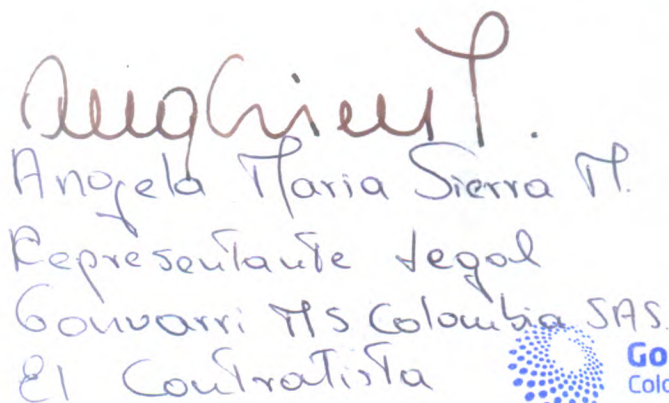 Angela Maria Sierra M.
Representante Legal
Gonvarri MS Colombia SAS.
El Contratista
Go
Colo